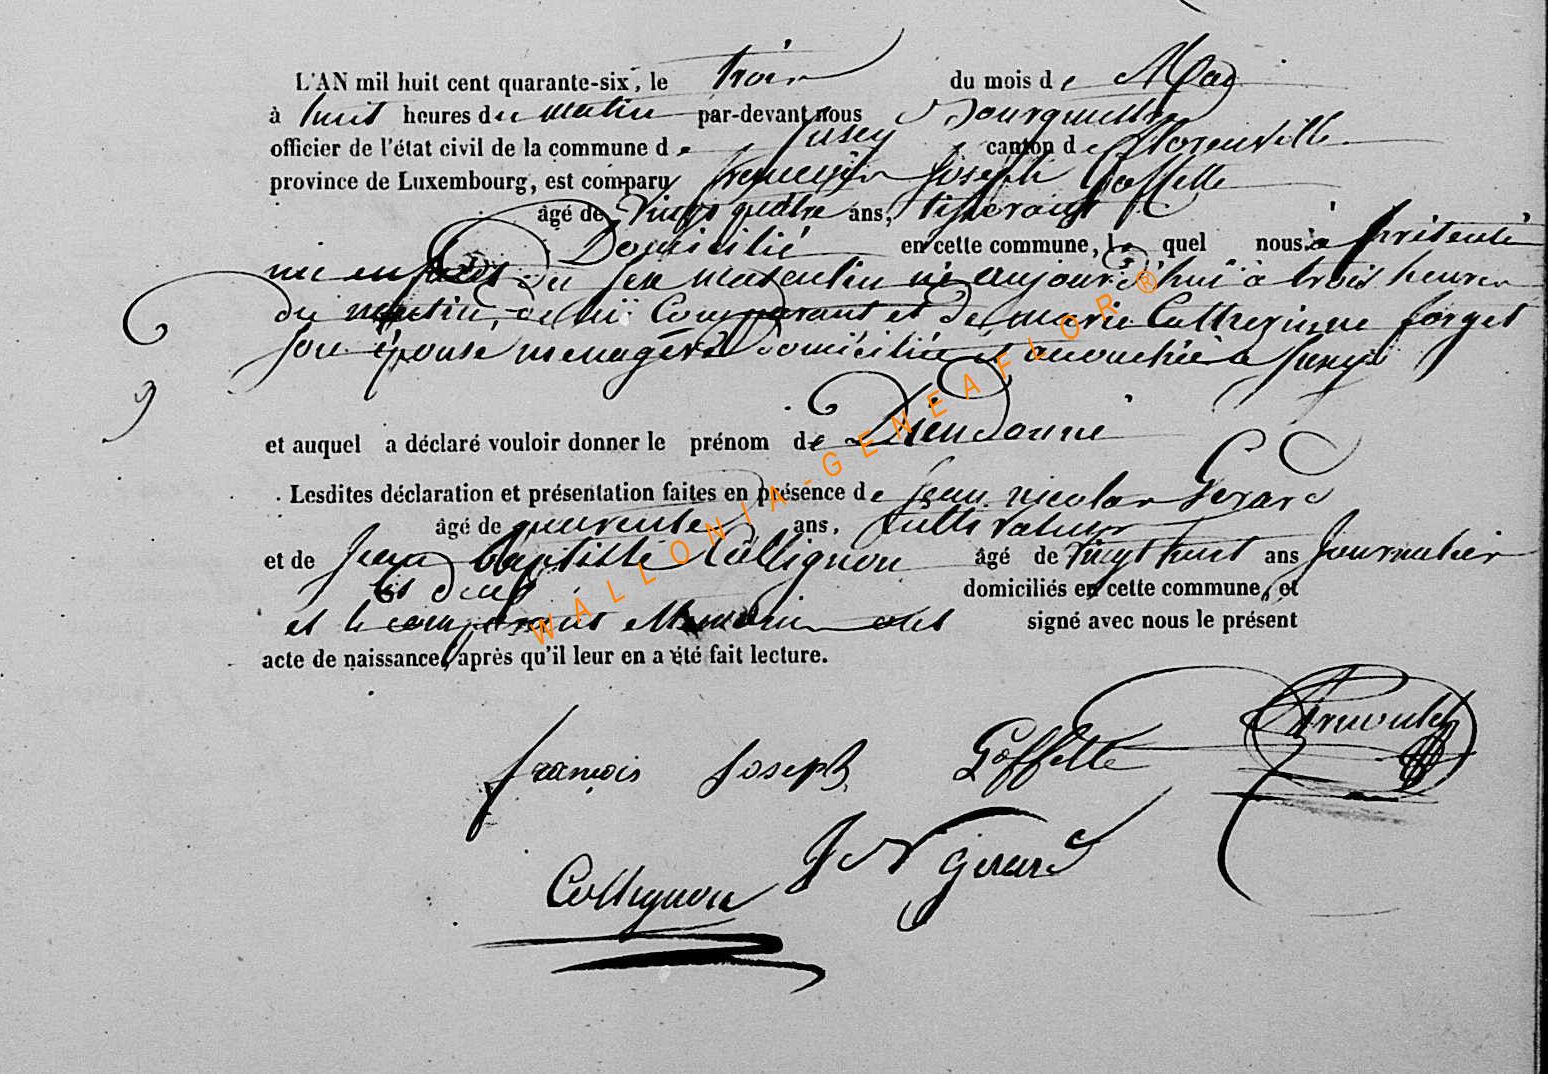 L'AN mil huit cent quarante-six, le trois du mois de Mai
à huit heures du matin par-devant nous
officier de l'état civil de la commune de canton de Florenville
province de Luxembourg, est comparu françois Joseph Goffette
âgé de vingt quatre ans, tisserand
Domicilié en cette commune, le quel nous a présenté
un enfant du sexe masculin né aujourd'hui à trois heures
du matin, de lui Comparant et de marie Catherinne forget
son épouse menagère domiciliée et accouchée a
et auquel a déclaré vouloir donner le prénom de Dieudonné
Lesdites déclaration et présentation faites en présence de jean nicolas Gerard
âgé de quarente ans, Cultivateur
et de Jean baptiste Collignon âgé de vingt huit ans Journalier
domiciliés en cette commune, et
et le comparant et témoins ont signé avec nous le présent
acte de naissance, après qu'il leur en a été fait lecture.
françois Joseph Goffette
J N gerard
Collignon
WALLONIA-GENEAFLOR ®